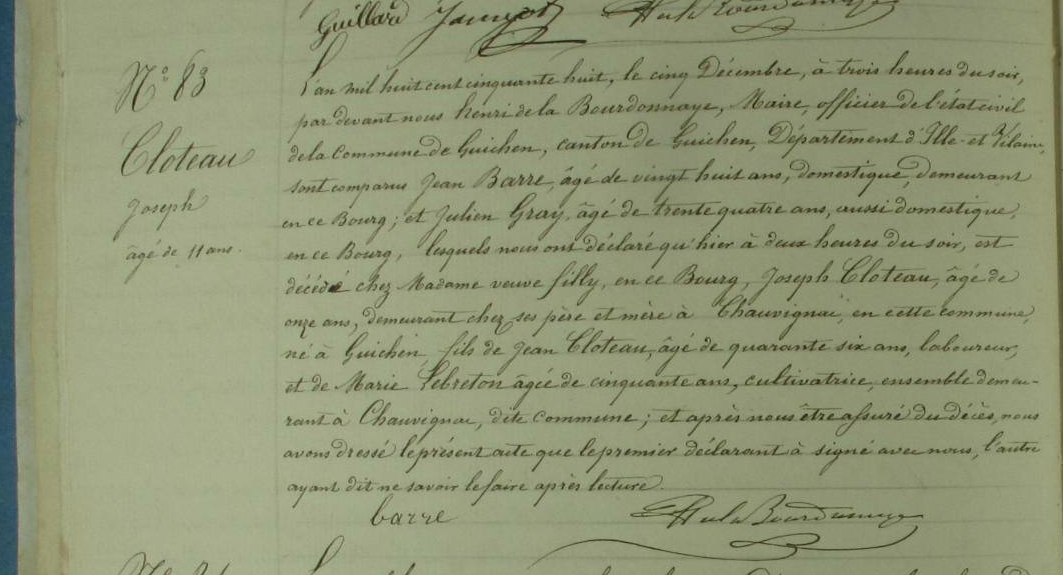 Guillard Jamyot HdelaBourdonnaye
N° 83
Cloteau
Joseph
âgé de 11 ans.
L'an mil huit cent cinquante huit, le cinq Décembre, à trois heures du soir,
par devant nous henri de la Bourdonnaye, Maire, officier de l'état civil
de la Commune de Guichen, canton de Guichen, Département d'Ille-et Vilaine,
sont comparus Jean Barre, âgé de vingt huit ans, domestique, demeurant
en ce Bourg; et Julien Gray, âgé de trente quatre ans, aussi domestique,
en ce Bourg, lesquels nous ont déclaré qu'hier à deux heures du soir, est
décédé chez Madame veuve filly, en ce Bourg, Joseph Cloteau, âgé de
onze ans, demeurant chez ses père et mère à Chauvignac, en cette commune,
né à Guichen, fils de Jean Cloteau, âgé de quarante six ans, laboureur,
et de Marie Lebreton âgée de cinquante ans, cultivatrice, ensemble demeu-
rant à Chauvignac, dite commune; et après nous être assuré du décès, nous
avons dressé le présent acte que le premier déclarant à signé avec nous, l'autre
ayant dit ne savoir le faire après lecture
barre HdelaBourdonnaye